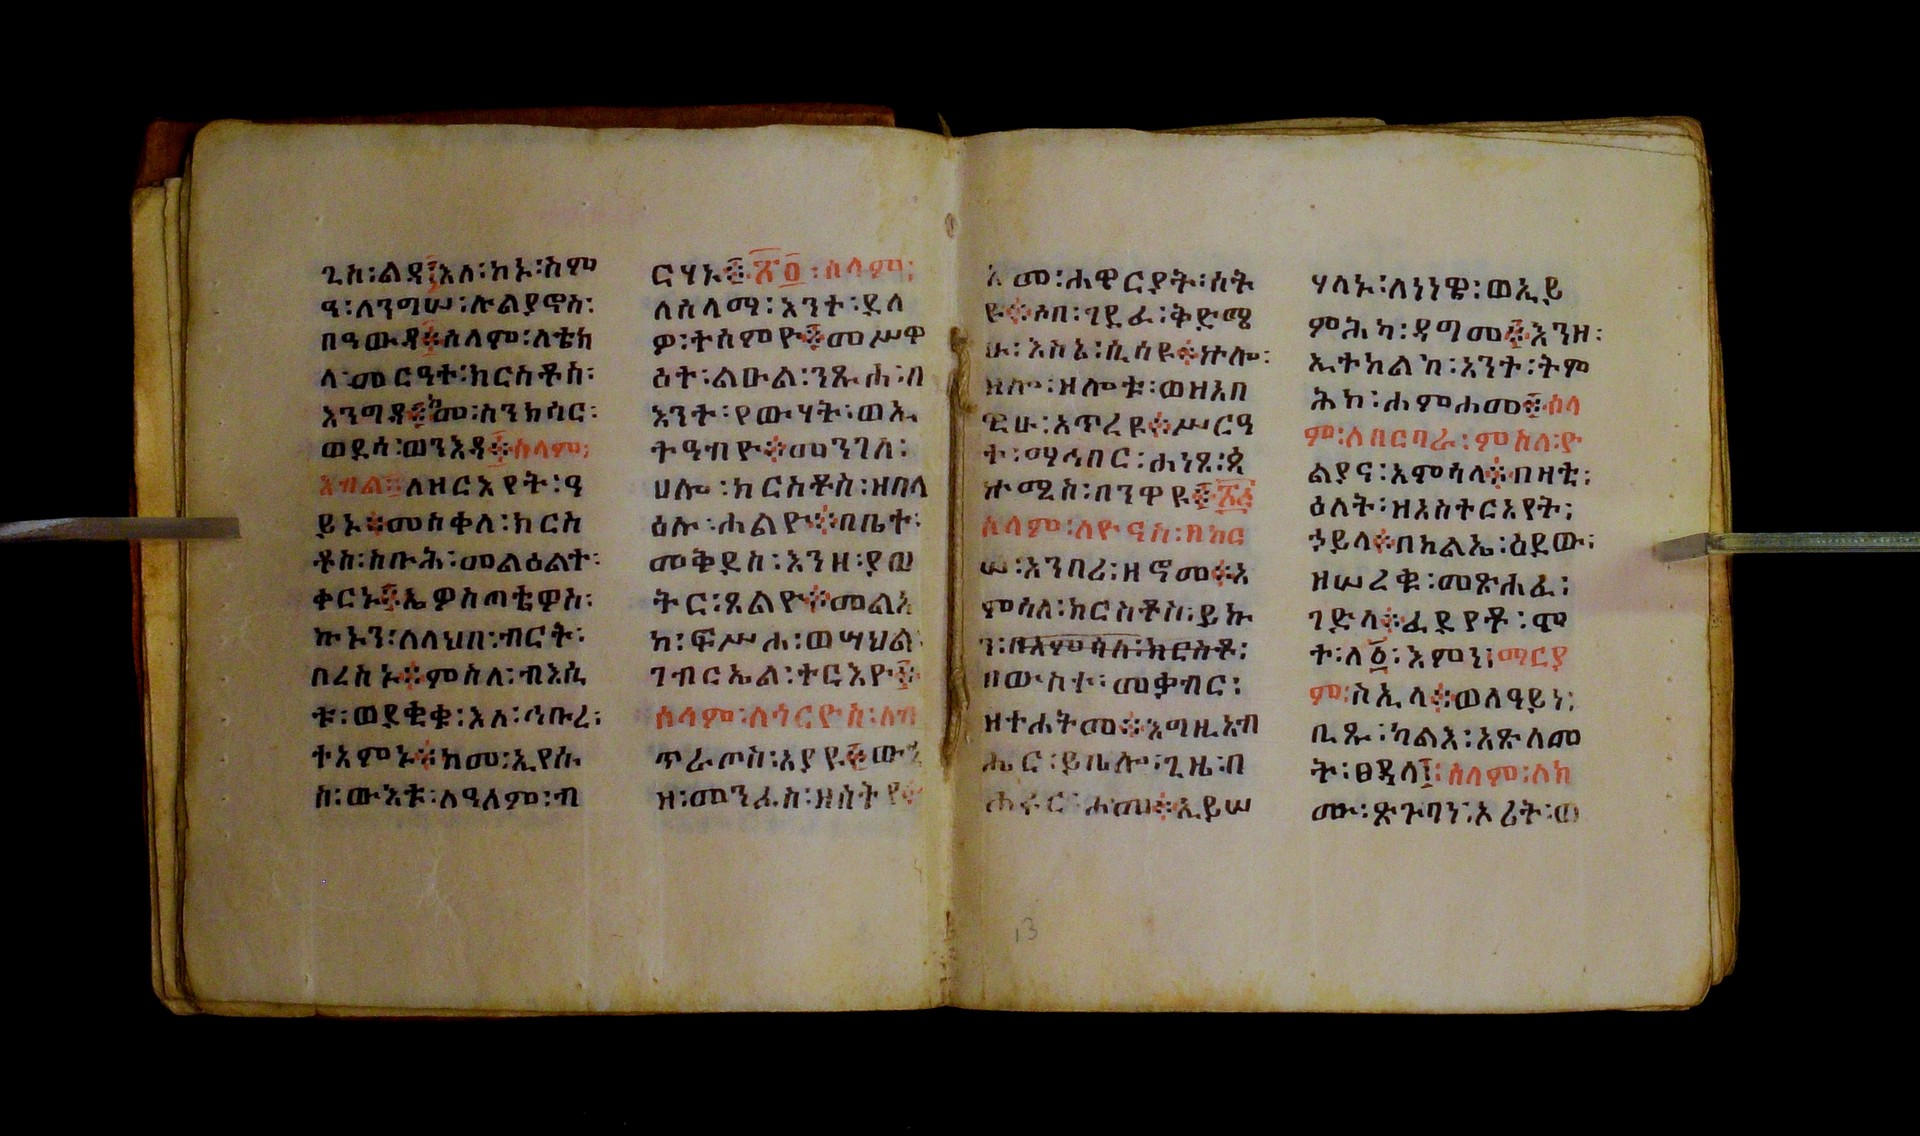 ጊስ፡ልዳ፤እለ፡ከኑ፡ስም
ዓ፡ለንግሠ፡ሉልያኖስ፡
በዓውዳ፨ሰላም፡ለቴክ
ላ፡መርዓተ፡ክርስቶስ፡
እንግዳ፨ከመ፡ስንክሳር፡
ወደሳ፡ወንእዳ፨ሰላም፡
እብል፡ለዝርእየት፡ዓ
ይኑ፨መስቀለ፡ክርስ
ቶስ፡ስቡሕ፡መልዕልተ፡
ቀርኑ፨ኤዎስጣቴዎስ፡
ኵኑን፡ለለህበ፡ብርት፡
በረስኑ፨ምስለ፡ብእሲ
ቱ፡ወደቂቁ፡እለ፡ኅቡረ፡
ተአምኑ፨ከመ፡ኢየሱ
ስ፡ውእቱ፡ለዓለም፡ብ
ርሃኑ፨፳፬፡ሰላም፡
ለሰላማ፡እንተ፡ደለ
ዎ፡ተሰምዮ፨መሥዋ
ዕት፡ልዑል፡ንጹሐ፡በ
እንተ፡የውሃት፡ወኢ
ትዓብዮ፨መንገለ፡
ሀሎ፡ክርስቶስ፡ዘበላ
ዕሉ፡ሐልዮ፨በቤተ፡
መቅደስ፡እንዘ፡ያወ
ትር፡ጸልዮ፨መልአ
ከ፡ፍሥሐ፡ወሣህል፡
ገብርኤል፡ተርእዮ፨
ሰላም፡ለጎርዮስ፡ለብ
ጥራጦስ፡አያዩ፨
ዝ፡መንፈስ፡ዘስት
አመ፡ሐዋርያት፡ሰት
ዩ፨ኀበ፡ገደፈ፡ቅድሜ
ሁ፡እስኔ፡ሲሰዩ፨ኵሎ፡
ዘሎ፡ዘሎቱ፡ወዘአበ
ዊሁ፡አጥረዩ፨ሥርዓ
ተ፡ማኅበር፡ሐነጸ፡ጳ
ኵሚስ፡በንዋዩ፨
ሰላም፡ለዮናስ፡በከር
ሠ፡አንበሪ፡ዘኖመ፨አ
ምሳለ፡ክርስቶስ፡ይኩ
ን፡በአምሳለ፡ክርስቶ፡
ዘውስተ፡መቃብር፡
ዘተሐትመ፨እግዚአብ
ሔር፡ይቤሎ፡ጊዜ፡በ
ሐሩር፡ሐመ፨ኢይሠ
ሃለኑ፡ለነነዌ፡ወኢይ
ምሕካ፡ዳግመ፨እንዘ፡
ኢተክልከ፡አንተ፡ትም
ሕከ፡ሐምሐመ፨ሰላ
ም፡ለበርባራ፡ምስለ፡ዮ
ልያና፡አምሳላ፨ብዛቲ፡
ዕለት፡ዘአስተርአየት፡
ኃይላ፨በክልኤ፡ዕደው፡
ዘሠረቁ፡መጽሐፈ፡
ገድላ፨ፈደየቶ፡ሞ
ተ፡ለ፩፡እምን፡ማርያ
ም፡ስኢላ፨ወለዓይነ፡
ቢጹ፡ካልእ፡አጽለመ
ት፡ፀዳላ፤፡ሰላም፡ሶክ
ሙ፡ጽጉባን፡ኦሪት፡ወ
13